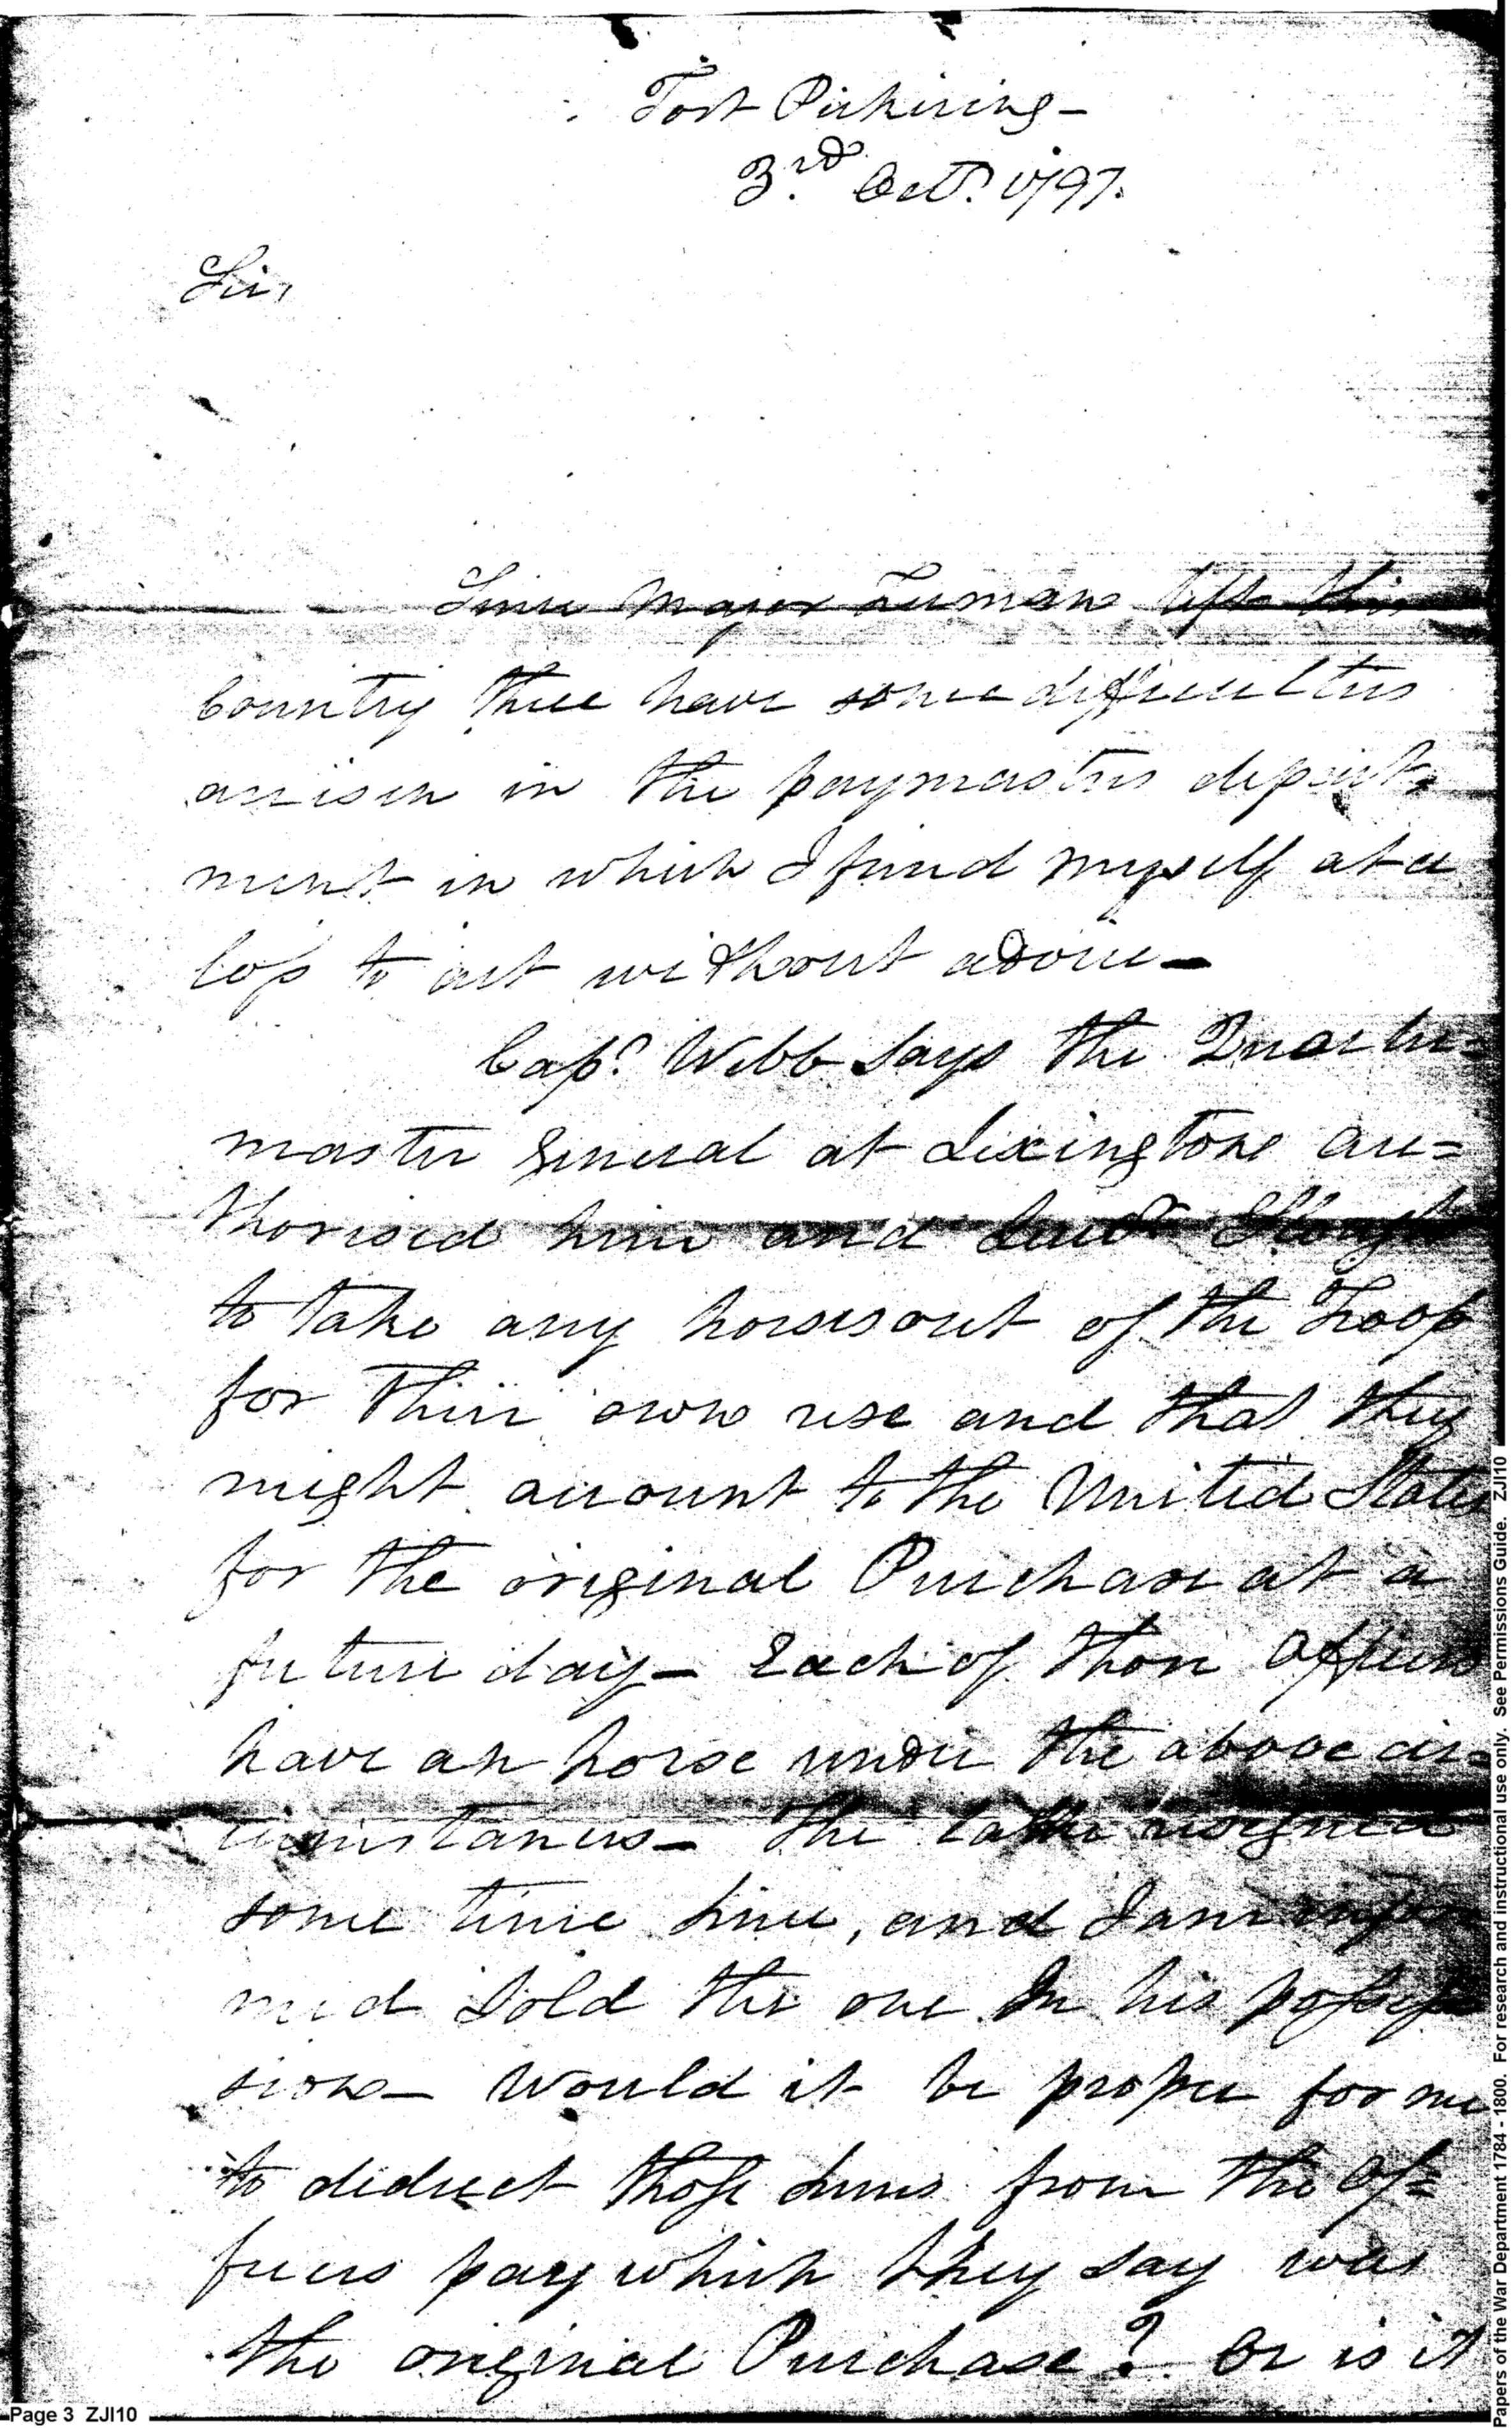 Fort Pickering-
3rd. Octr. 1797.
Sir,
Since Major Tuman left this
Country thee have some difficulties
arrisen in the paymasters depart=
ment in which I find myself at a
loss to act without advice-
Capt. Webb says the Quarter=
master General at Lexington au=
thorised him and Lieut.
to take any horses out of the Troop
for their own use and that they
might account to the United States
for the original Purchase at a
future day- Each of those Officers
have an horse under the above cir=
cumstances- The latter resigned
some time since, and I am infor
med sold the one In his posses
sion- Would it be proper for me
to deduct those sums from the of=
ficers pay which they say was
the original Purchase? Or is it
Page 3 ZJI10
Papers of the War Department 1784 - 1800. For research and instructional use only. See Permissions Guide. ZJI10